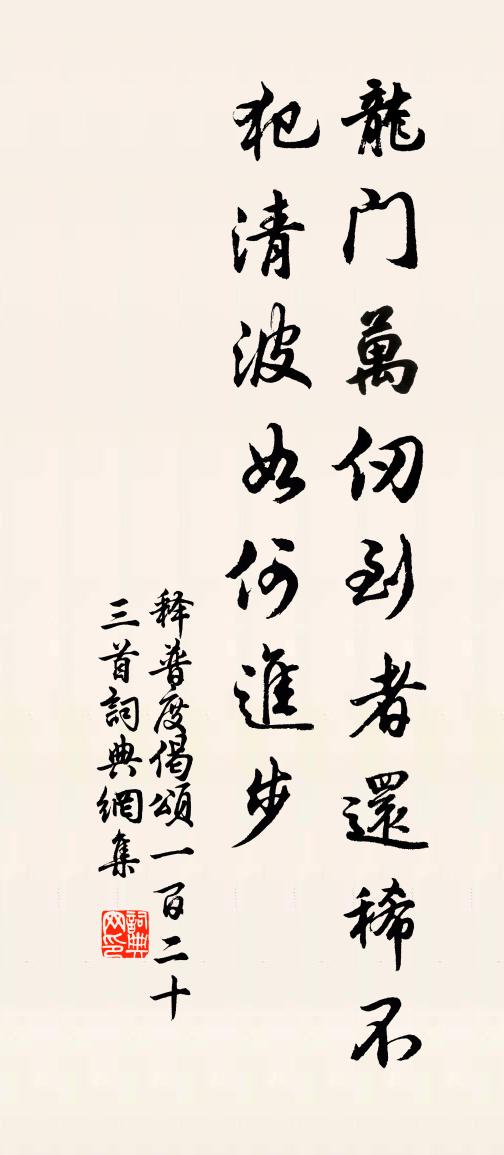 龍門萬仞到者還稀不
犯清波如何進步
释普度偈頌一百二十
三首詞典網集
詞典网印